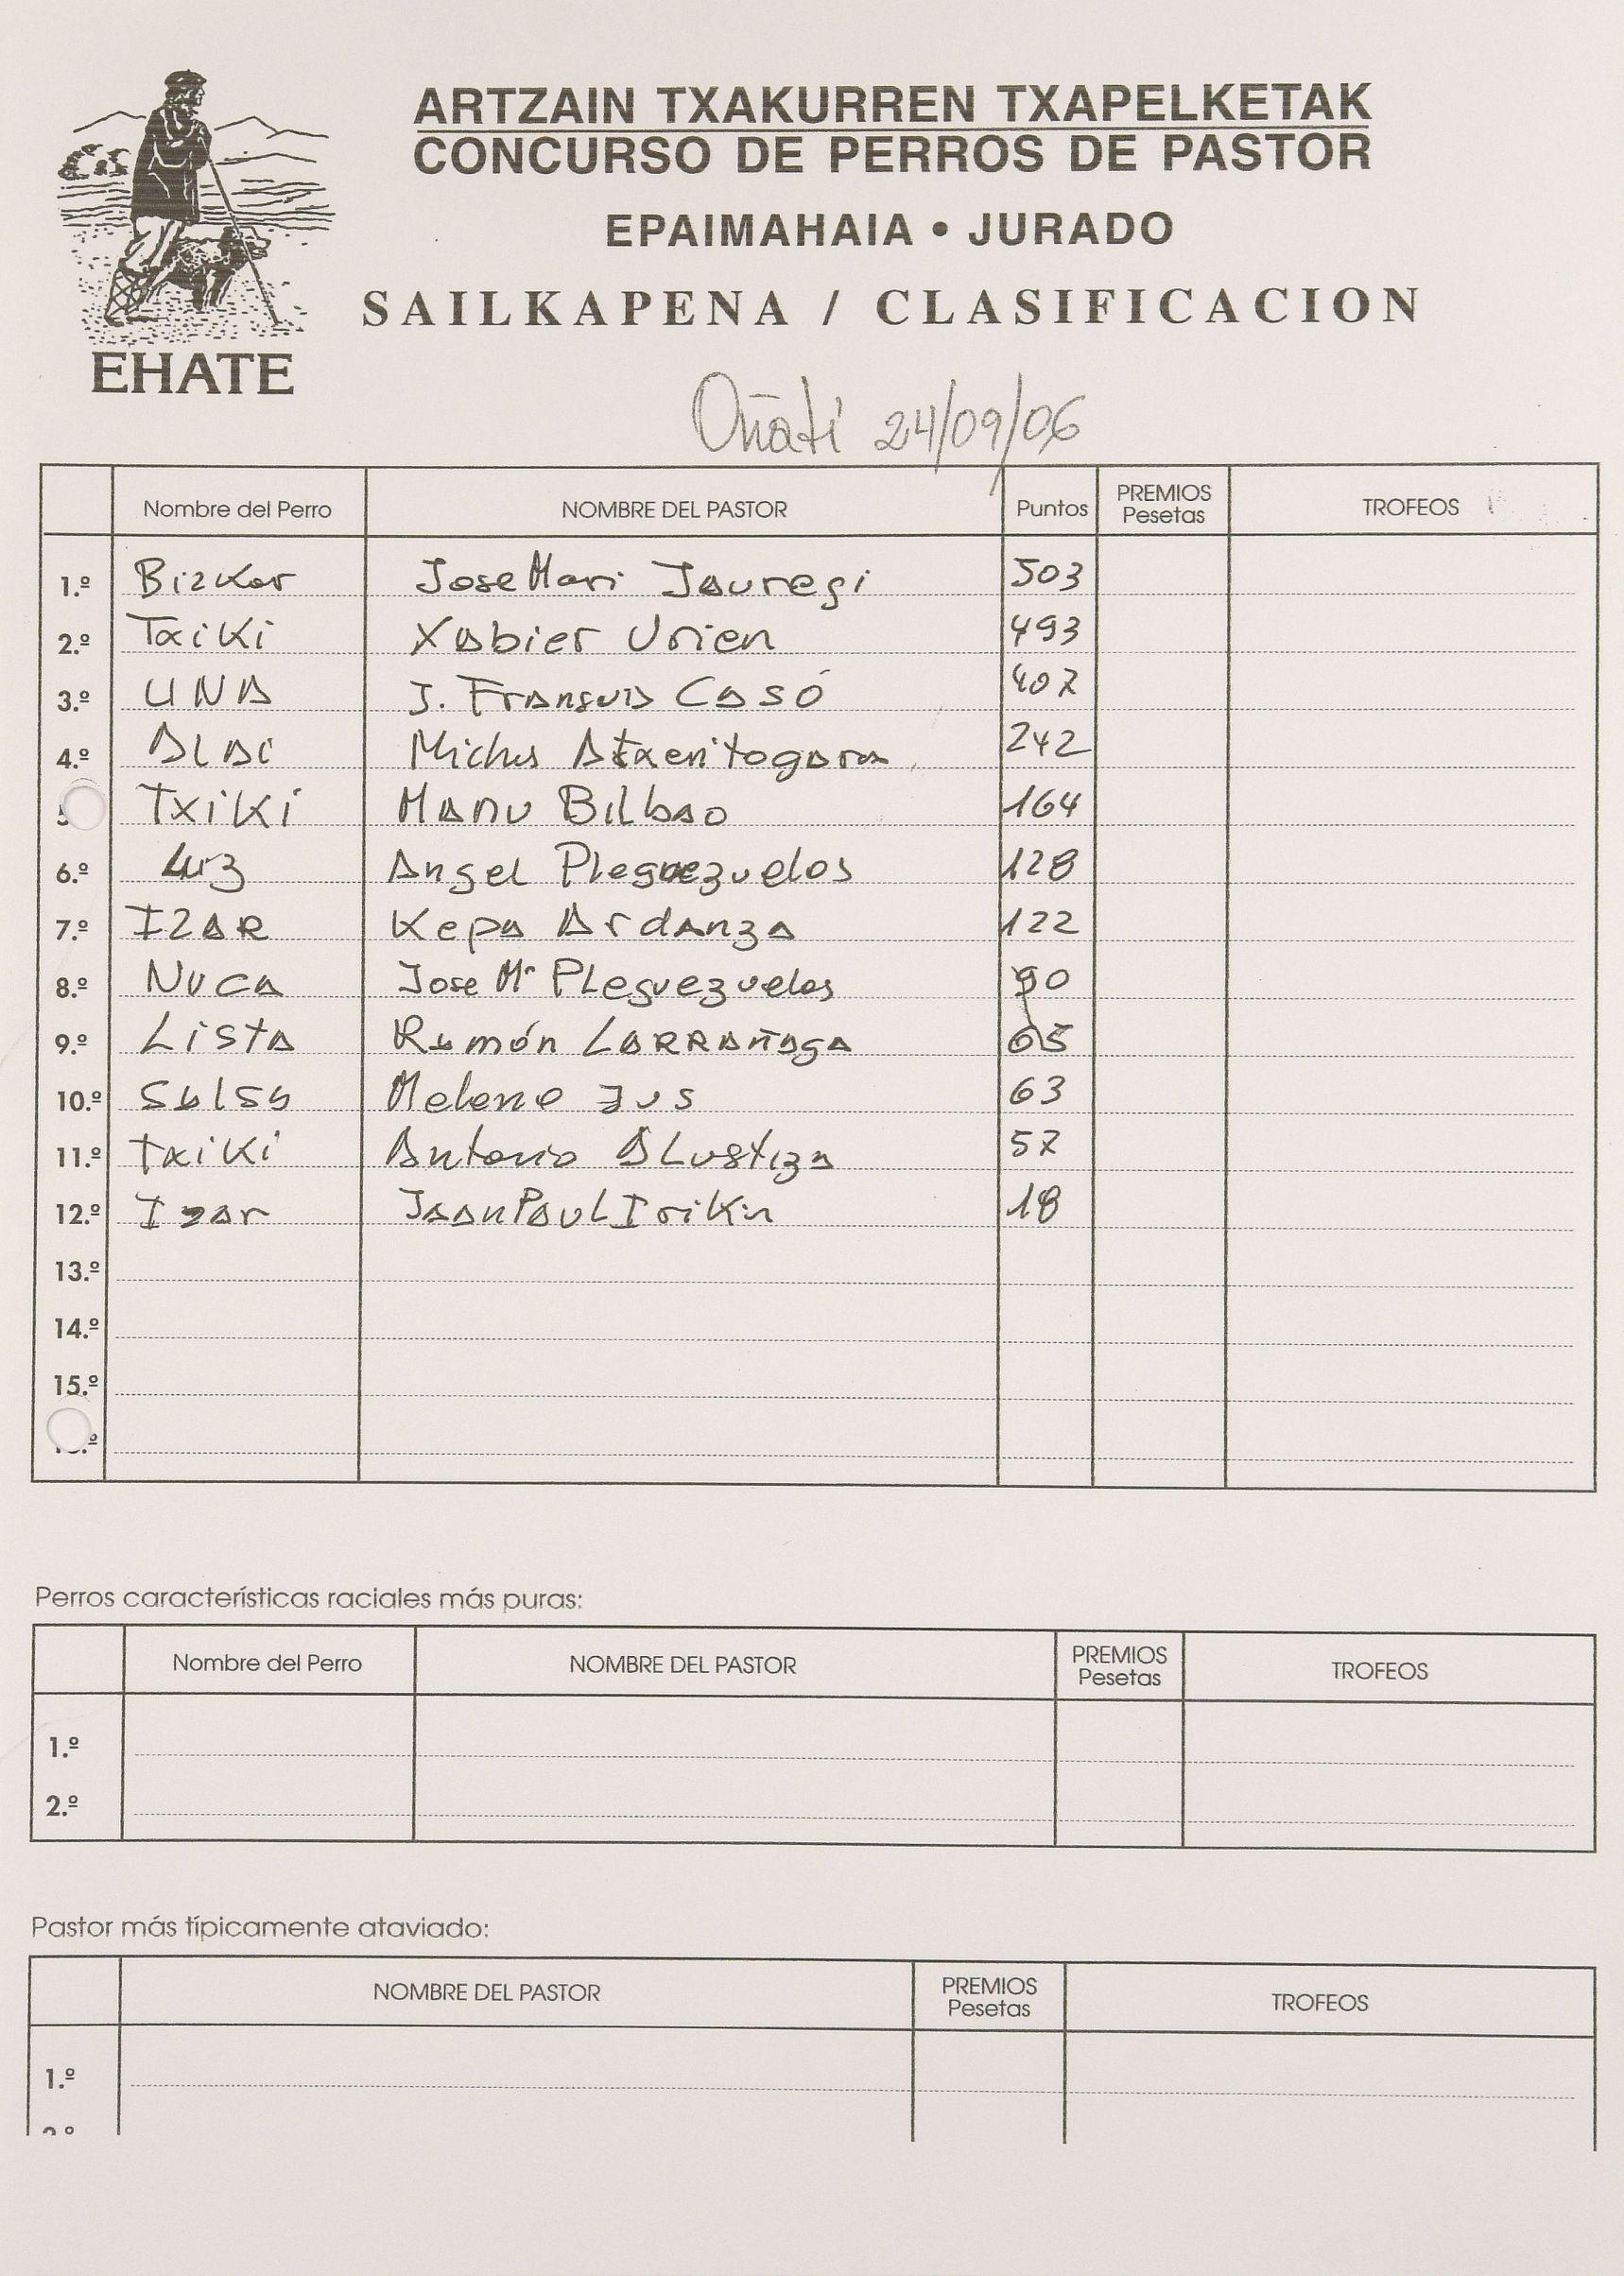 ARTZAIN TXAKURREN TXAPELKETAK
CONCURSO DE PERROS DE PASTOR
EPAIMAHAIA • JURADO
SAILKAPENA / CLASIFICACION
EHATE
Oñati 24/09/06
Nombre del Perro NOMBRE DEL PASTOR Puntos PREMIOS Pesetas TROFEOS
1.º Bizkar Jose Mari Jauregi 503
2.º Txiki Xabier Urien 493
3.º UNA J. Fransua Casó 407
4.º ALAI 242
5 Txiki MANU Bilbao 164
6.º Luz Angel Pleguezuelos 128
7.º IZAR Kepa Ardanza 122
8.º Nuca Jose Mª Pleguezuelos 90
9.º Lista Ramón LARRAÑAGA 65
10.º Salsa 63
11.º Txiki Antonio Alustiza 57
12.º Izar Jaan Paul Irikin 18
13.º
14.º
15.º
Perros características raciales más puras:
Nombre del Perro NOMBRE DEL PASTOR PREMIOS Pesetas TROFEOS
1.º
2.º
Pastor más típicamente ataviado:
NOMBRE DEL PASTOR PREMIOS Pesetas TROFEOS
1.º